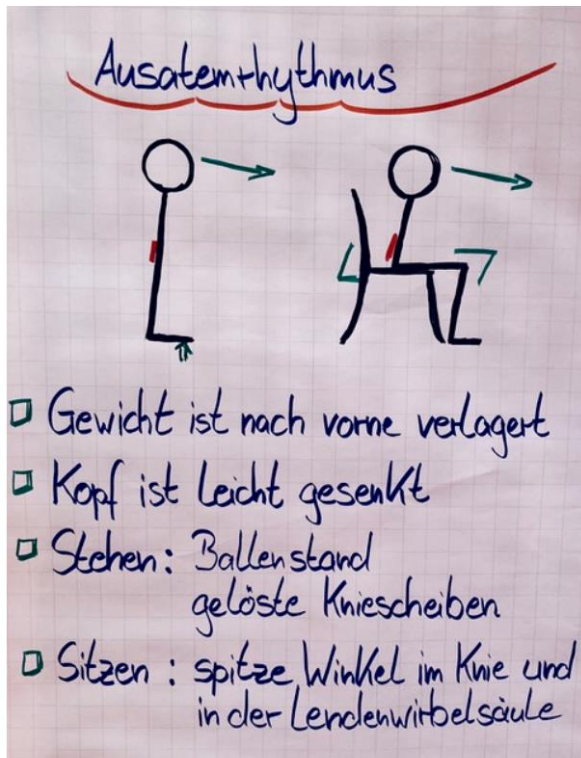 Ausatemrhythmus
Gewicht ist nach vorne verlagert
Kopf ist leicht gesenkt
Stehen: Ballenstand
gelöste Kniescheiben
Sitzen: spitze Winkel im Knie und
in der Lendenwirbelsäule